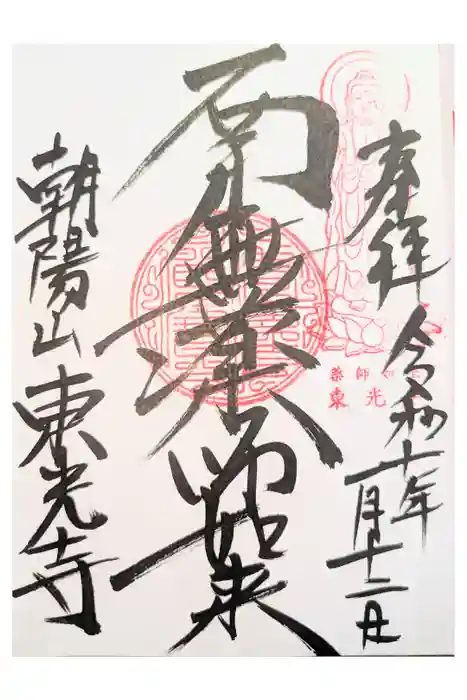 奉拝 令和 年 月十二日
薬師如
東光
南無薬師如来
朝陽山 東光寺